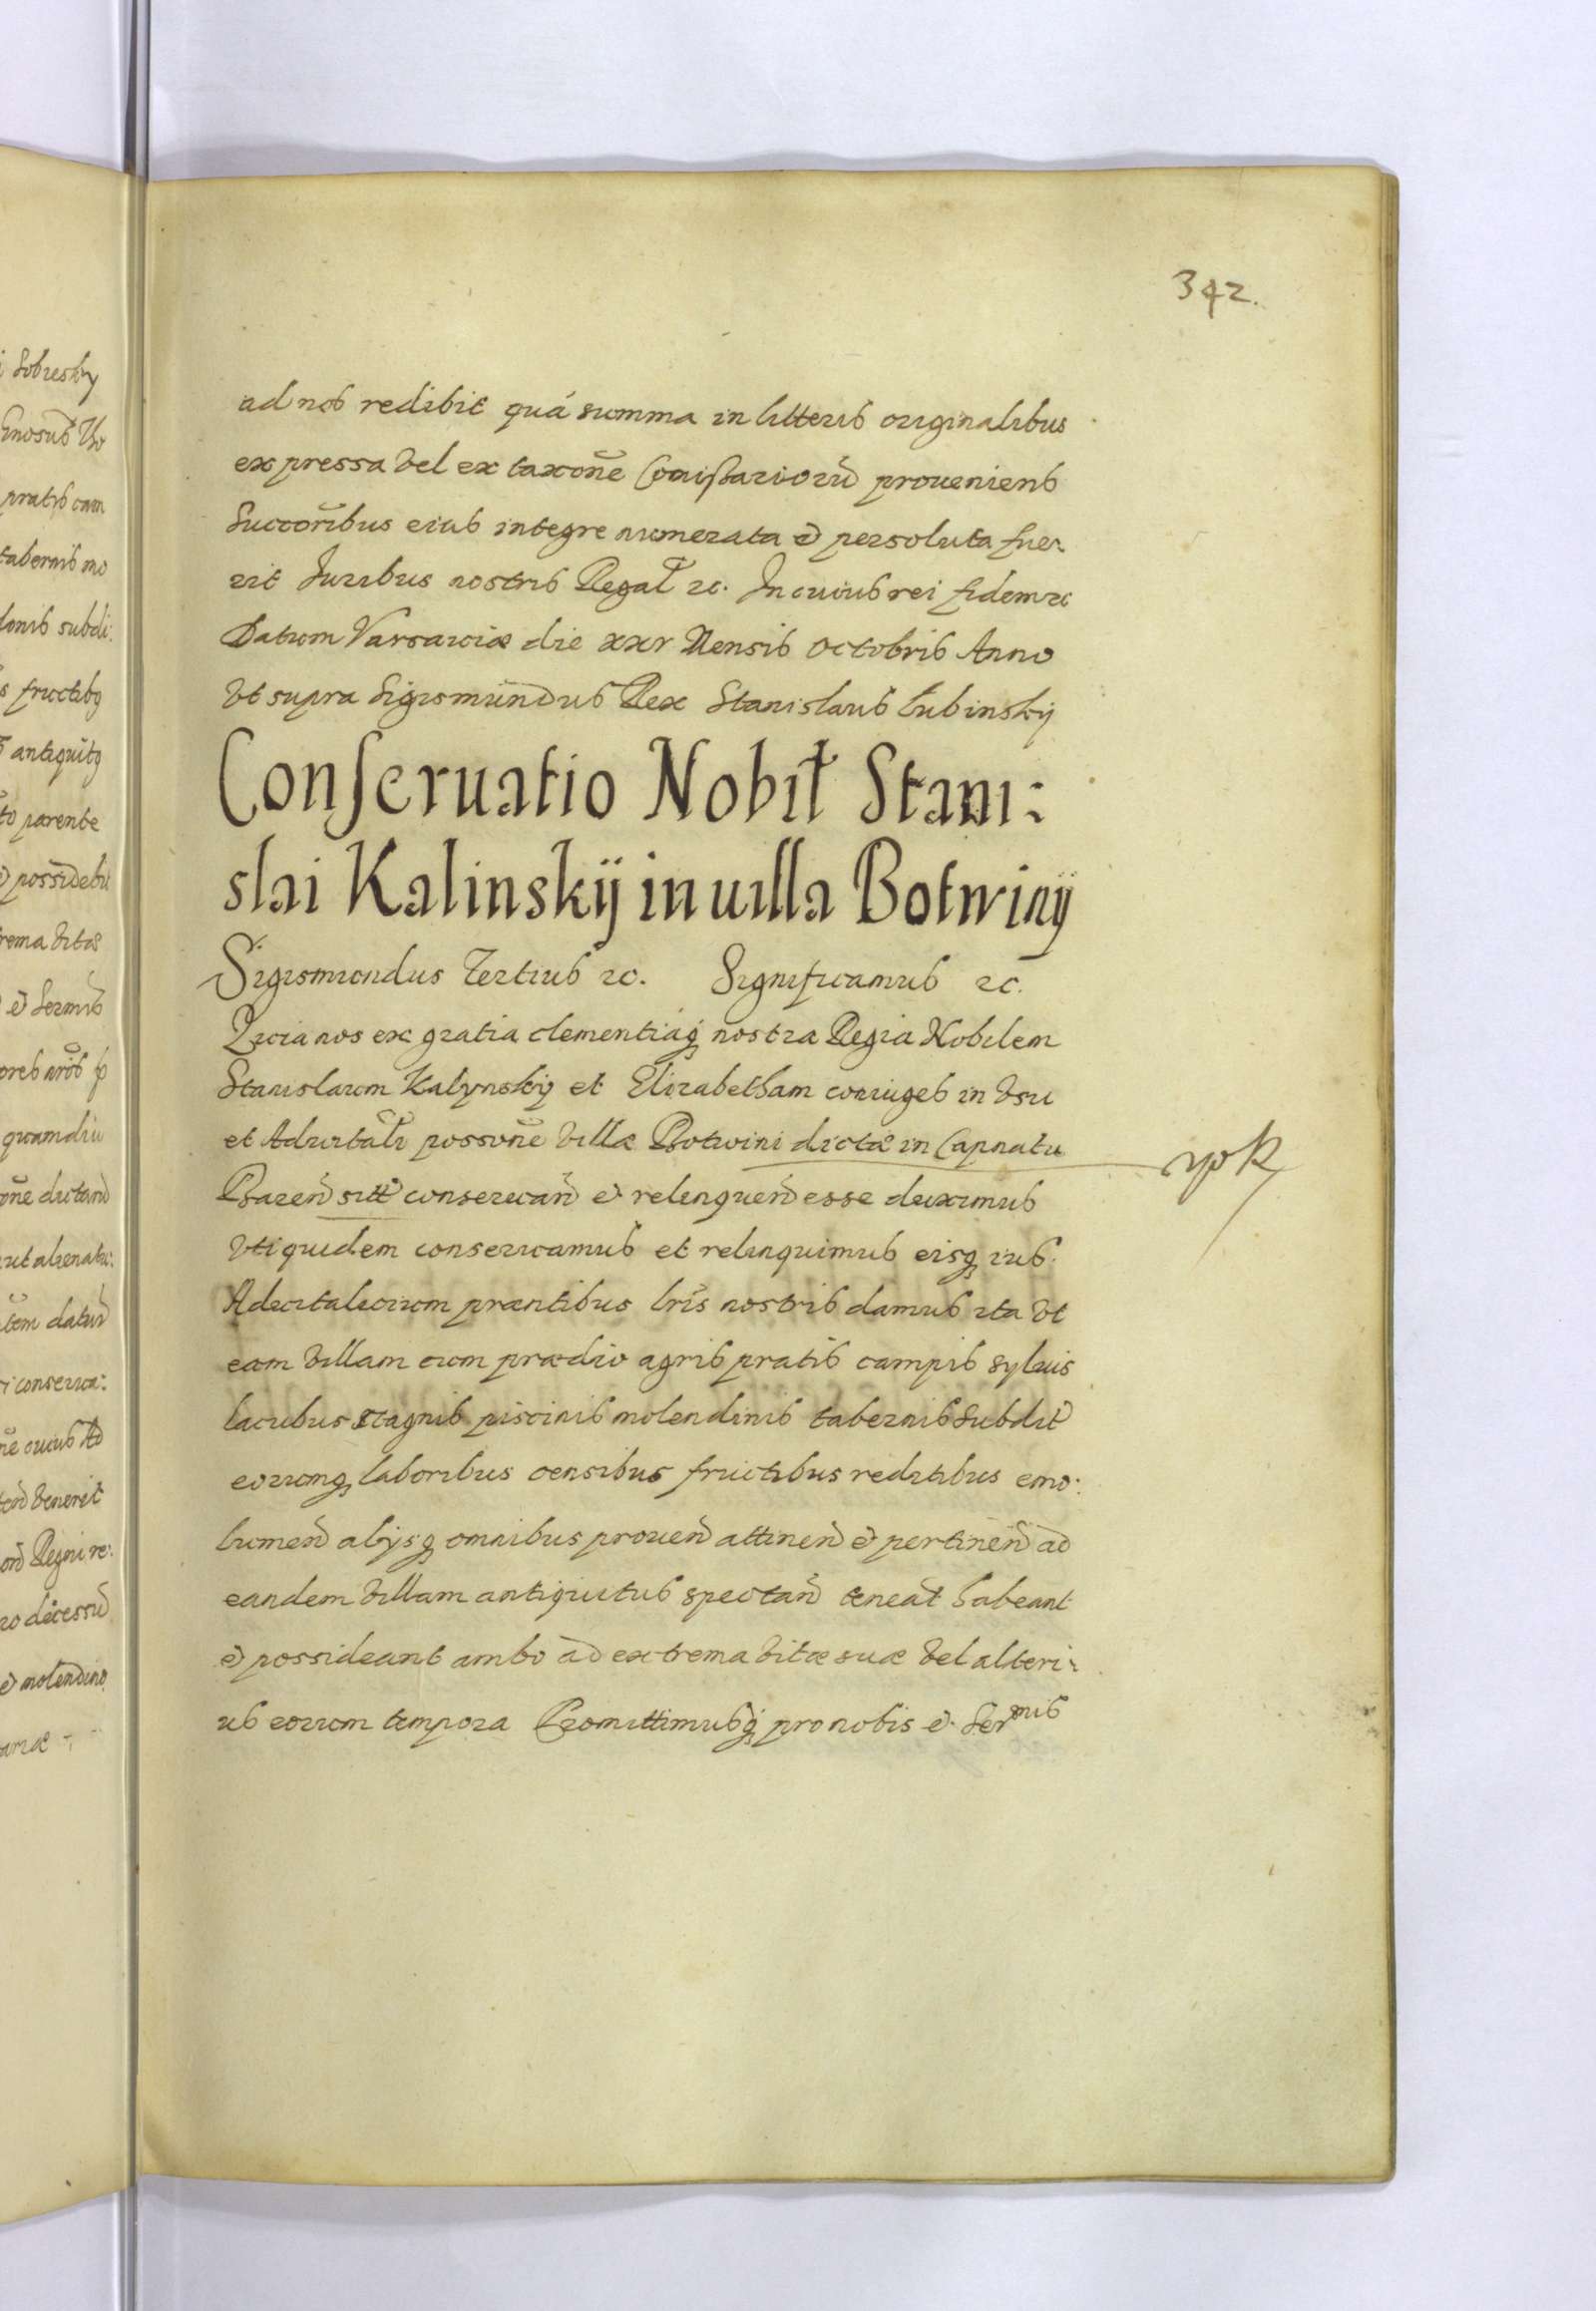 342.
ad nos redibit quá summa in litteris originalibus
expressa vel ex taxone Comissariorũ proueniens
Succoribus eius integre numerata et persoluta fue-
rit Juribus nostris Regal̃ etc. In cuius rei fidem etc
Datum Varsauiæ die xxv Mensis Octobris Anno
vt supra Sigismundus Rex Stanislaus Łubinskij
Conseruatio Nobil̃ Stani:
slai Kalinskij in uilla Botwinij
Sigismundus Tertius etc. Significamus etc.
Quia nos ex gratia clementiáq3 nostra Regia Nobilem
Stanislaum Kalynskij et Elizabetham coniuges in vsu
et Aduitali possone villæ Botwini dictæ in Capnatu
sitt conseruan̄ et relinquen̄ esse duximus
vti quidem conseruamus et relinquimus eisq3 ius
Aduitaleeuum præntibus lris nostris damus ita vt
eam villam cum prædio agris pratis campis syluis
lacubus stagnis piscinis molendinis tabernis Subdit̃
eorumq3 laboribus censibus fructibus reditibus emo:
lumen̄ alijsq3 omnibus prouen̄ attinen̄ et pertinen̄ ad
eandem villam antiquitus spectan̄ teneat̃ habeant
et possideant ambo ad extrema vitæ suæ vel alteri:
us eorum tempora Promittimusq3 pro nobis et Sermis
i Sobresky
pratis cum
tabernis mo
lonis subdi:
s fructibq
antiquitq
to parente
et possidebit
rema vitæ
et Sermis
quamdiu
one dictand
ut alienatu:
tem datur
i conserua:
ne cuius Ad
venerit
Regni re:
ro decessu
et molendino